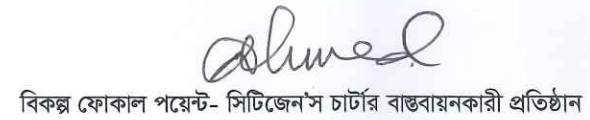 Ahmed
বিকল্প ফোকাল পয়েন্ট- সিটিজেন'স চার্টার বাস্তবায়নকারী প্রতিষ্ঠান